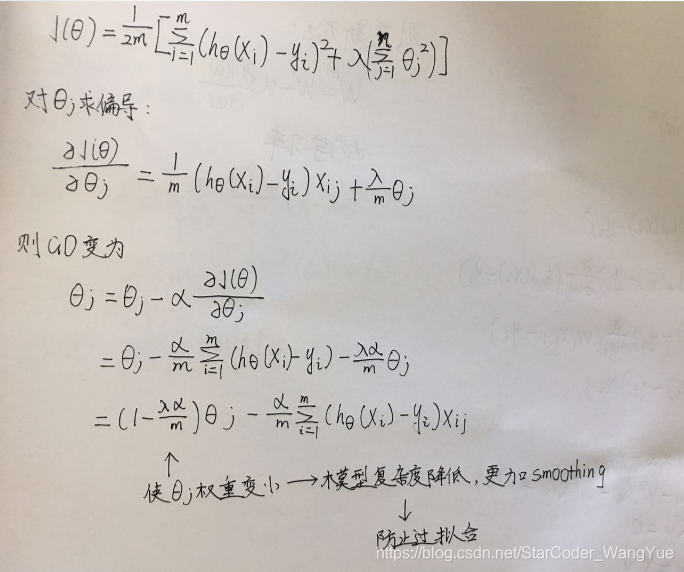 J(θ) = 1/2m [∑_{i=1}^{m} (hθ(xi) - yi)² + λ(∑_{j=1}^{n} θj²)]
对θj求偏导:
∂J(θ)/∂θj = 1/m (hθ(xi) - yi) xij + λ/m θj
则GD变为
θj = θj - α ∂J(θ)/∂θj
= θj - α/m ∑_{i=1}^{m} (hθ(xi) - yi) - λα/m θj
= (1 - λα/m) θj - α/m ∑_{i=1}^{m} (hθ(xi) - yi) xij
↑
使θj权重变小 → 模型复杂度降低, 更加smoothing
↓
防止过拟合
https://blog.csdn.net/StarCoder_WangYue